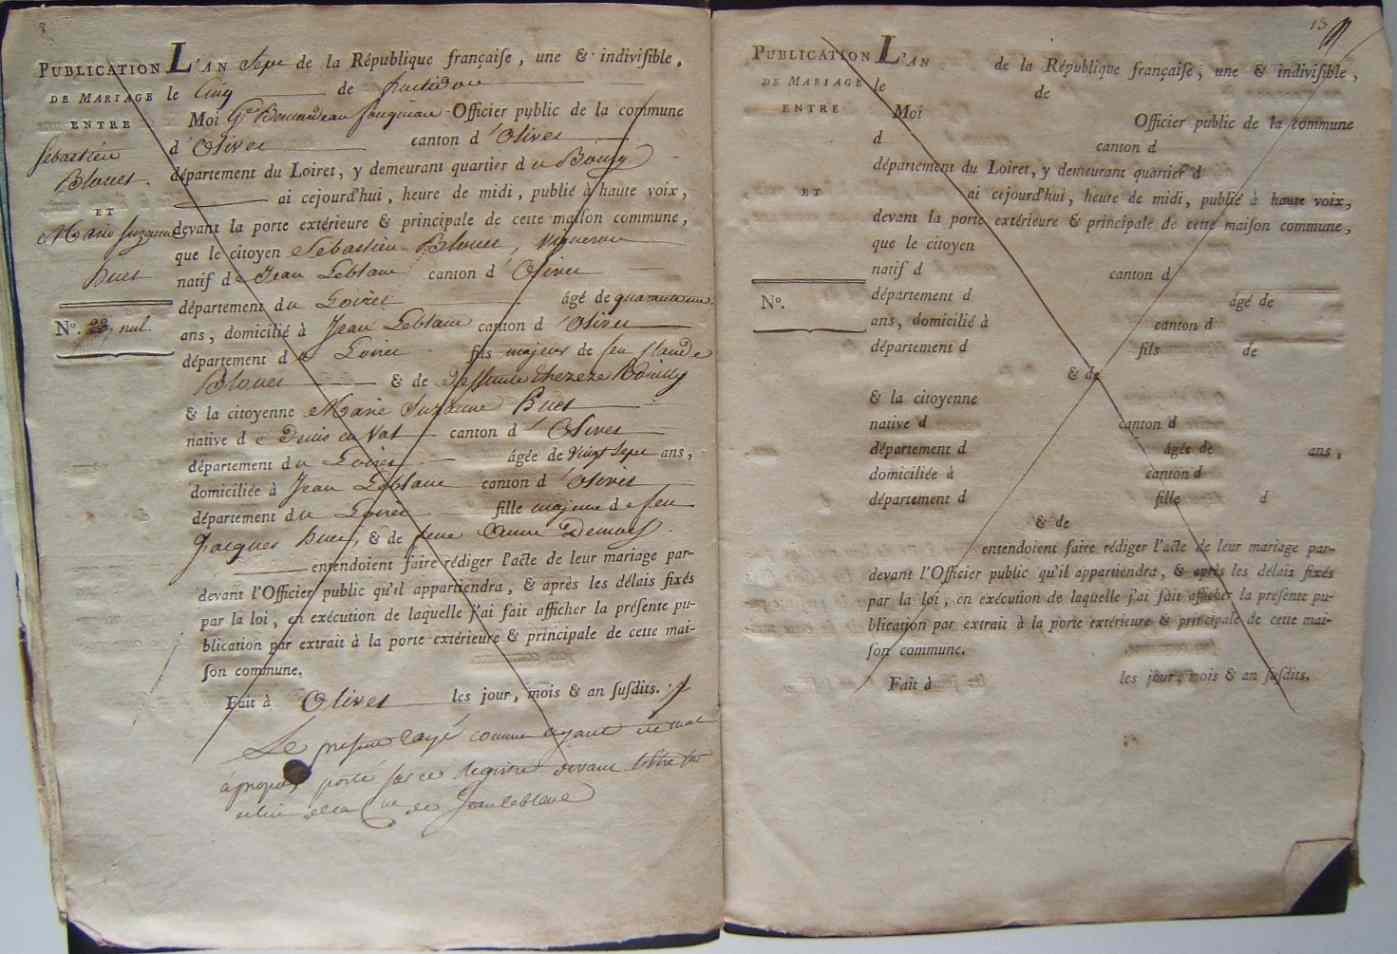 8
PUBLICATION
DE MARIAGE
ENTRE
Sebastien
Blouet.
ET
Marie Suzanne
Buet
N°. 23, nul.
L'AN Sept de la République françaiſe, une & indiviſible,
le Cinq de
Moi Officier public de la commune
d'Olivet canton d'Olivet
département du Loiret, y demeurant quartier du Bourg
ai cejourd'hui, heure de midi, publié à haute voix,
devant la porte extérieure & principale de cette maiſon commune,
que le citoyen Sebastien Blouet, Vigneron
natif de Jean Leblanc canton d'Olivet
département du Loiret âgé de quarante un
ans, domicilié à Jean Leblanc canton d'Olivet
département du Loiret fils majeur de feu Claude
Blouet & de deffunte Thereze
& la citoyenne Marie Suzanne Buet
native de Denis en Val canton d'Olivet
département du Loiret âgée de Vingt Sept ans,
domiciliée à Jean Leblanc canton d'Olivet
département du Loiret fille majeure de feu
Jacques Buet, & de feue Anne
entendoient faire rédiger l'acte de leur mariage par-
devant l'Officier public qu'il appartiendra, & après les délais fixés
par la loi, en exécution de laquelle j'ai fait afficher la préſente pu-
blication par extrait à la porte extérieure & principale de cette mai-
ſon commune.
Fait à Olivet les jour, mois & an ſuſdits.
Le présent rayé comme ayant été mal
àpropos porté sur ce Registre devant
de la Cne de Jean leblanc
15
PUBLICATION
DE MARIAGE
ENTRE
ET
N°.
L'AN de la République françaiſe, une & indiviſible,
le de
Moi Officier public de la commune
d canton d
département du Loiret, y demeurant quartier d
ai cejourd'hui, heure de midi, publié à haute voix,
devant la porte extérieure & principale de cette maiſon commune,
que le citoyen
natif d canton d
département d âgé de
ans, domicilié à canton d
département d fils de
& de
& la citoyenne
native d canton d
département d âgée de ans,
domiciliée à canton d
département d fille d
& de
entendoient faire rédiger l'acte de leur mariage par-
devant l'Officier public qu'il appartiendra, & après les délais fixés
par la loi, en exécution de laquelle j'ai fait afficher la préſente pu-
blication par extrait à la porte extérieure & principale de cette mai-
ſon commune.
Fait à les jour, mois & an ſuſdits.